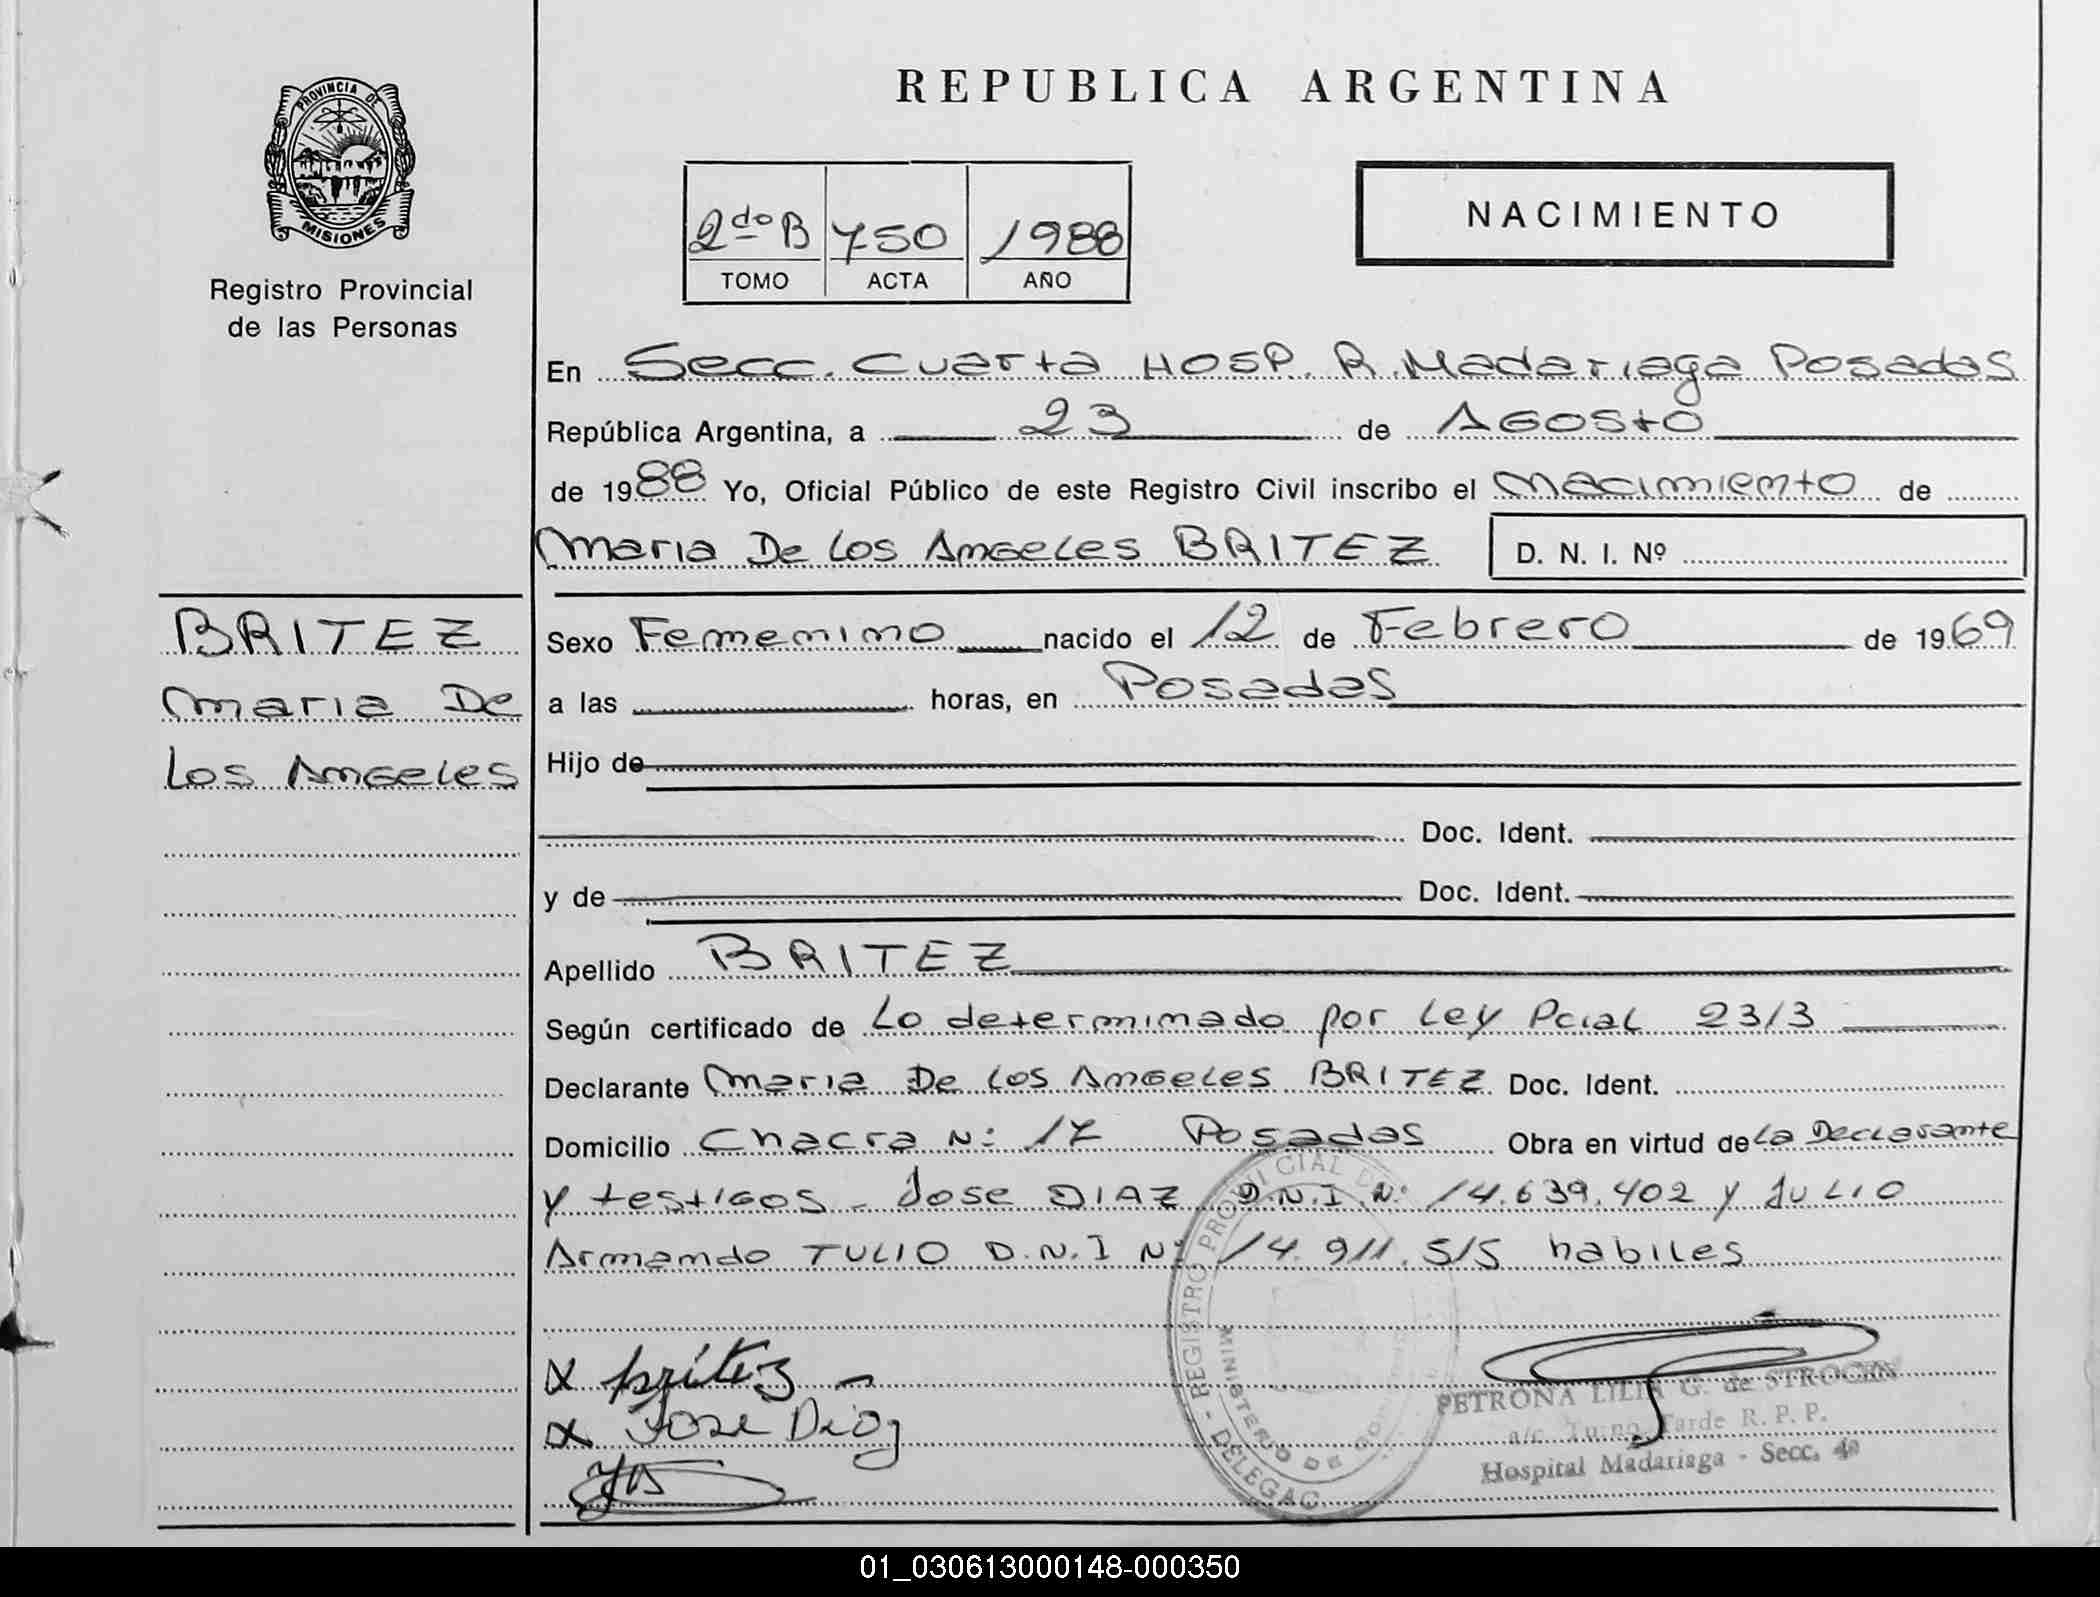 PROVINCIA DE
MISIONES
Registro Provincial
de las Personas
REPUBLICA ARGENTINA
2do B 750 1988
TOMO ACTA AÑO
NACIMIENTO
En Secc. Cuarta HOSP. R. Madariaga Posadas
República Argentina, a 23 de AGOSTO
de 1988 Yo, Oficial Público de este Registro Civil inscribo el Nacimiento de
Maria De Los Angeles BRITEZ D. N. I. Nº
BRITEZ
Maria De
Los Angeles
Sexo Femenino nacido el 12 de Febrero de 1969
a las horas, en Posadas
Hijo de
Doc. Ident.
y de Doc. Ident.
Apellido BRITEZ
Según certificado de Lo determinado por Ley Pcial 2313
Declarante Maria De Los Angeles BRITEZ Doc. Ident.
Domicilio Chacra N: 17 Posadas Obra en virtud de La Declarante
y testigos - Jose DIAZ D.N.I N: 14.639.402 y JULIO
Armando TULIO D.N.I N: 14.911.515 habiles
x britez -
x Jose Diaz
REGISTRO PROVINCIAL D
MINISTERIO DE GO
- DELEGAC
PETRONA LILIA G. de STROCEN
a/c. Turno Tarde R. P. P.
Hospital Madariaga - Secc. 4a
01_030613000148-000350